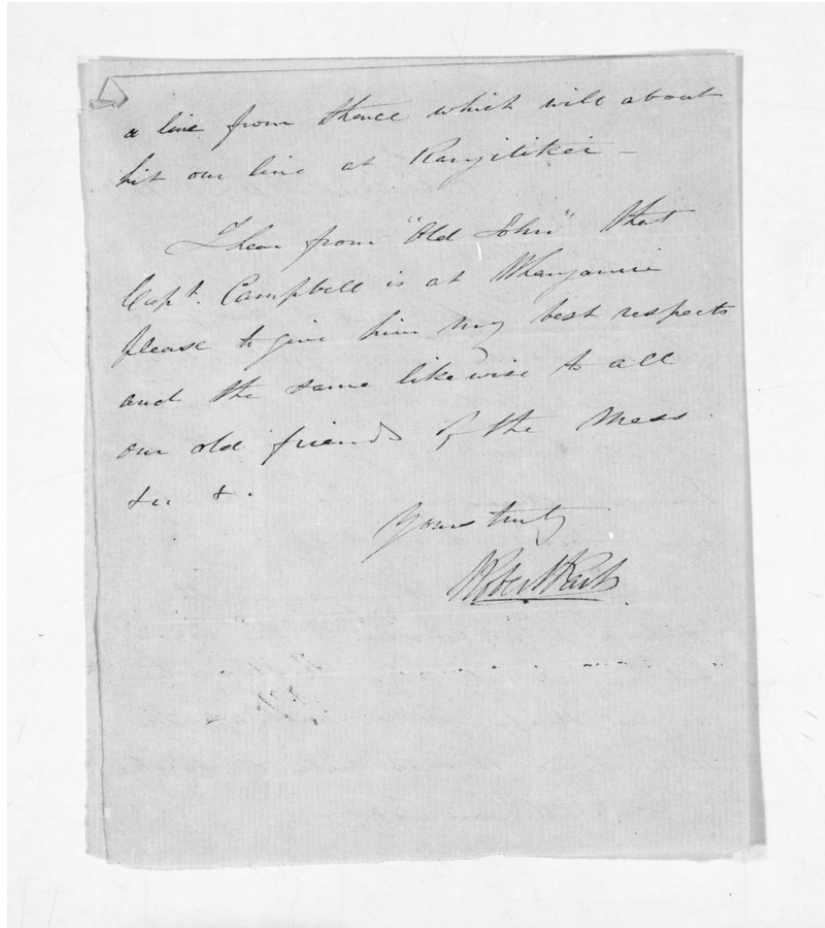 a line from thence which will about
hit our line at Rangitikei –
I hear from "Old John" that
Capt. Campbell is at Whanganui
please to give him my best respects
and the same likewise to all
our old friends of the Mess
&c &.
Yours truly
Robert Park